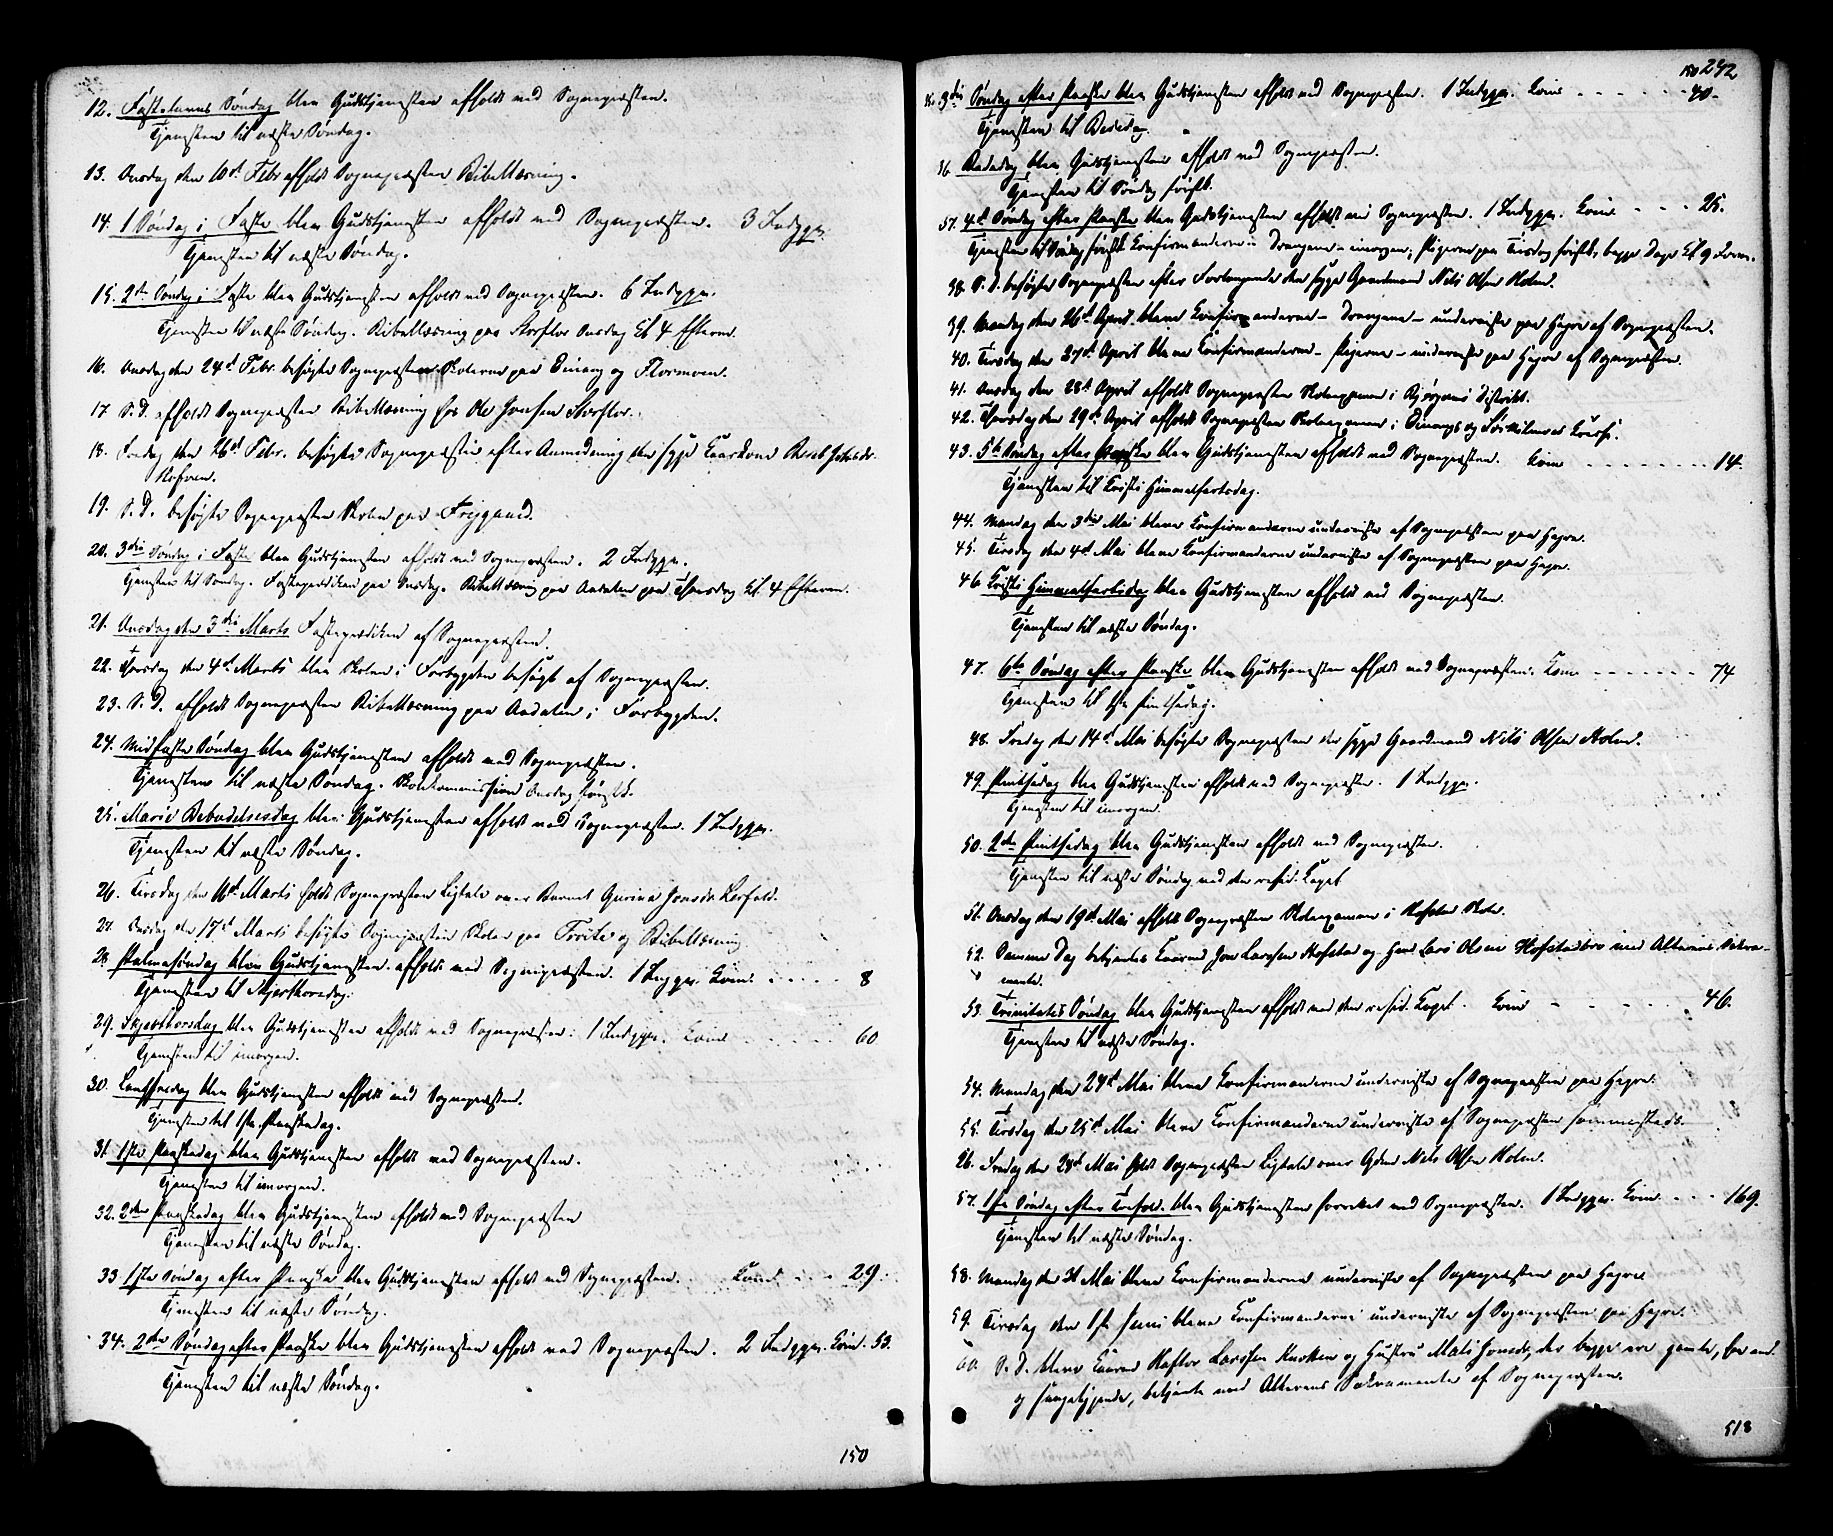 12. Fastelavns Søndag blev Gudstjenesten afholdt ved Sognepræsten.
Tjenesten til næste Søndag.
13. Onsdag den 10d Febr afholdt Sognepræsten Bibellæsning.
14. 1 Søndag i Faste blev Gudstjenesten afholdt ved Sognepræsten. 3 Indggr.
Tjenesten til næste Søndag.
15. 2den Søndag i Faste blev Gudstjenesten afholdt ved Sognepræsten. 6 Indggr.
Tjenesten til næste Søndag. Bibellæsning paa Storflor Onsdag Kl 4 Efterm.
16. Onsdag den 24d Febr. besøgte Sognepræsten Skolerne paa Einang og Flormoen.
17. S.D. afholdt Sognepræsten Bibellæsning hos Ole Jonsen Storflor.
18. Fredag den 26d Febr. besøgte Sognepræsten efter Anmodning den syge Kaarkone Beret
19. S.D. besøgte Sognepræsten Skolen paa
20. 3die Søndag i Faste blev Gudstjenesten afholdt ved Sognepræsten. 2 Indggr.
Tjenesten til Søndag. Fasteprædiken paa Onsdag. Bibellæsning paa Audalen paa Thorsdag Kl. 4 Efterm.
21. Onsdag den 3die Marts Fasteprædiken af Sognepræsten.
22. Thorsdag den 4d Marts blev Skolen i Forbygden besøgt af Sognepræsten.
23. S.D. afholdt Sognepræsten Bibellæsning paa Audalen i Forbygden.
24. Midfaste Søndag blev Gudstjenesten afholdt ved Sognepræsten.
Tjenesten til næste Søndag. Skolekommission Onsdag førstk.
25. Mariæ Bebudelsesdag blev Gudstjenesten afholdt ved Sognepræsten. 1 Indggr.
Tjenesten til næste Søndag.
26. Tirsdag den 16d Marts holdt Sognepræsten Ligtale over Barnet Gurina Jonsdr. Lerfald.
27. Onsdag den 17d Marts besøgte Sognepræsten Skolen paa og Bibellæsning
28. Palmesøndag blev Gudstjenesten afholdt ved Sognepræsten. 1 Inggr. Com. - - - - - 8
Tjenesten til Skjærthorsdag.
29. Skjærthorsdag blev Gudstjenesten afholdt ved Sognepræsten. 1 Indggr. Com. - - - - - 60
Tjenesten til imorgen.
30. Langfredag blev Gudstjenesten afholdt ved Sognepræsten.
Tjenesten til 1ste Paaskedag.
31. 1ste Paaskedag blev Gudstjenesten afholdt ved Sognepræsten.
Tjenesten til imorgen.
32. 2den Paaskedag blev Gudstjenesten afholdt ved Sognepræsten
Tjenesten til næste Søndag.
33 1ste Søndag efter Paaske blev Gudstjenesten afholdt ved Sognepræsten. Comm. - - - 29.
Tjenesten til næste Søndag.
34. 2den Søndag efter Paaske blev Gudstjenesten afholdt ved Sognepræsten. 2 Indggr. Com. 53.
Tjenesten til næste Søndag.
150
150 242
35. 3die Søndag efter Paaske blev Gudstjenesten afholdt ved Sognepræsten. 1 Indggr. Com. - - - - - - 40.
Tjenesten til Bededag.
36. Bededag blev Gudstjenesten afholdt ved Sognepræsten.
Tjenesten til Søndag førstk.
37. 4d Søndag efter Paaske blev Gudstjenesten afholdt ved Sognepræsten. 1 Indggr. Com. - - - 25.
Tjenesten til Søndag førstk. Konfirmanderne - Drengene - imorgen; Pigerne paa Tirsdag førstk, begge Dage Kl 9 Form.
38. S.D. besøgte Sognepræsten efter Forlangende den syge Gaardmand Nils Olsen Holm.
39. Mandag den 26d April bleve Konfirmanderne - Drengene - underviste paa Hegre af Sognepræsten.
40. Tirsdag den 27d April bleve Konfirmanderne - Pigerne - underviste paa Hegre af Sognepræsten.
41. Onsdag den 28d April afholdt Sognepræsten Skolexamen i Bjørgans Distrikt.
42. Thorsdag den 29d April afholdt Sognepræsten Skolexamen i Einangs og Kreds.
43. 5te Søndag efter Paaske blev Gudstjenesten afholdt ved Sognepræsten. Com - - - - - - - 14.
Tjenesten til Kristi Himmelfartsdag.
44. Mandag den 3die Mai bleve Konfirmanderne underviste af Sognepræsten paa Hegre.
45. Tirsdag den 4d Mai bleve Konfirmanderne underviste af Sognepræsten paa Hegre.
46. Kristi Himmelfartsdag blev Gudstjenesten afholdt ved Sognepræsten.
Tjenesten til næste Søndag.
47. 6te Søndag efter Paaske blev Gudstjenesten afholdt ved Sognepræsten. Com - - - - - - - 74
Tjenesten til 1ste Pintsedag.
48. Fredag den 14d Mai besøgte Sognepræsten den syge Gaardmand Nils Olsen Holm.
49. Pintsedag blev Gudstjenesten afholdt ved Sognepræsten. 1 Indggr.
Tjenesten til imorgen.
50. 2den Pintsedag blev Gudstjenesten afholdt ved Sognepræsten.
Tjenesten til næste Søndag ved den resid. Capel
51. Onsdag den 19d Mai afholdt Sognepræsten Skolexamen i Hofstad Skole.
52. Samme Dag betjentes Kaarmd Jon Larssen Hofstad og Lars Olsen Hofstadbro med Alterens Sakra-
mente.
53. Trinitatis Søndag blev Gudstjenesten afholdt ved den resid. Capel. Com - - - - - - 46.
Tjenesten til næste Søndag.
54. Mandag den 24d Mai bleve Konfirmanderne underviste af Sognepræsten paa Hegre.
55. Tirsdag den 25d Mai bleve Konfirmanderne underviste af Sognepræsten sammesteds.
56. Fredag den 28d Mai holdt Sognepræsten Ligtale over Gdmd Nils Olsen Holm.
57. 1ste Søndag efter Trefold. blev Gudstjenesten forrettet ved Sognepræsten. 1 Indggr. Com. - - - 169.
Tjenesten til næste Søndag.
58. Mandag den 31 Mai bleve Konfirmanderne underviste af Sognepræsten paa Hegre
59. Tirsdag den 1ste Juni bleve Konfirmanderne underviste af Sognepræsten paa Hegre.
60. S.D. bleve Kaarmd Haftor Larssen og Hustru Mali Jonsdr, der begge ere gamle,
og sengeliggende, betjente med Alterens Sakramente af Sognepræsten.
513